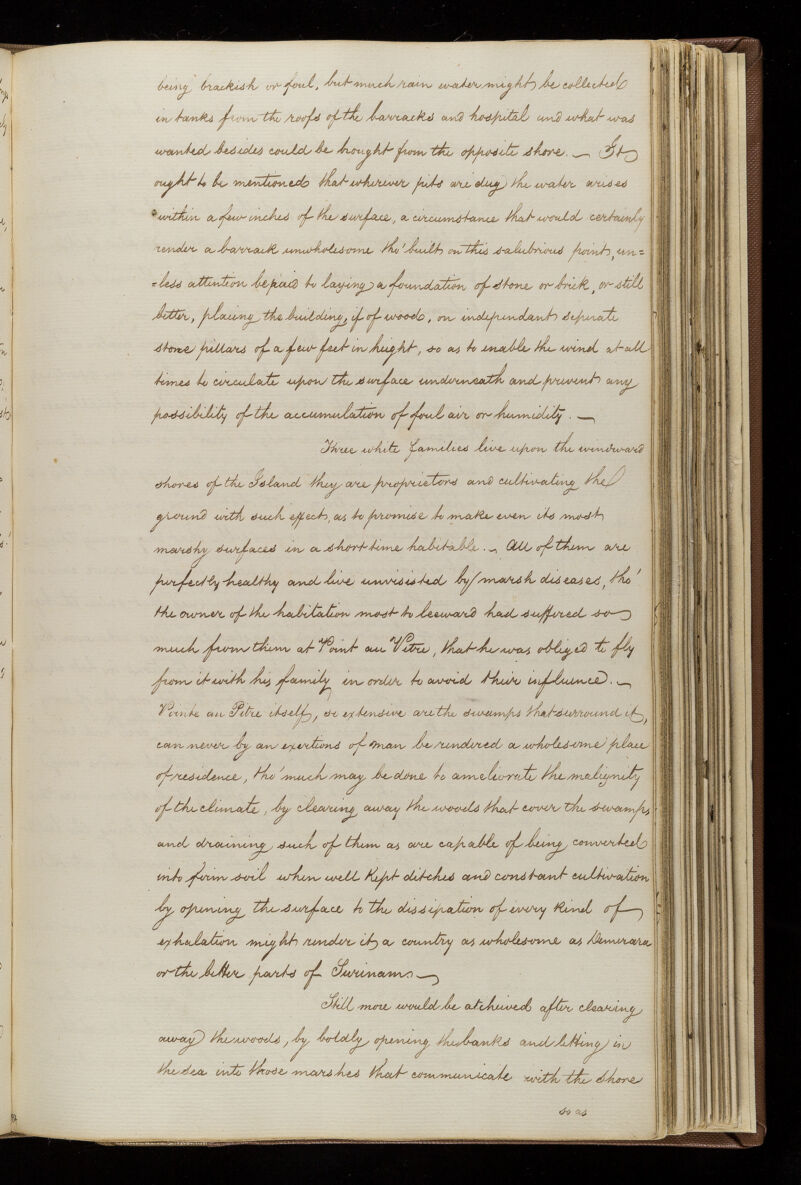 being brackish or foul, but much rain water might be collected
in tanks from the roofs of the barracks and hospital and what was
wanted besides could be brought from the opposite shore. – It
ought to be mentioned that wherever pits are dug the water arises
within a few inches of the surface, a circumstance that would certainly
render a barrack unwholesome tho' built on this salubrious point, un=
=less attention be paid to laying a foundation of stone or brick, or still
better, placing the building, if of wood, on independant seperate
stone pillars of a few feet in height, so as to enable the wind at all
times to circulate upon the surface underneath and prevent any
possibility of the accumulation of foul air or humidity. –
Three white families live upon the windward
shores of the Island they are proprietors and cultivating the
ground with such effect, as to promise to make even its most
marshy surfaces in a short time habitable. – All of them are
perfectly healthy and live unvisisted by marsh diseases, tho'
the owner of the habitation most to leeward had suffered so
much from them at Point au Petre, that he was obliged to fly
from it with his family in order to avoid their influence. –
Pointe au Petre itself, so extensive are the swamps that surround it,
can never by an exertions of man be rendered a wholesome place
of residence, tho' much may be done to ameliorate the malignity
of the climate, by clearing away the woods that cover the swamps
and draining such of them as are capable of being converted
into firm soil when well kept ditches and constant cultivation
by opening the surface to the dissipation of every kind of
exhalation might render it a country as wholesome as Demerara
or the better parts of Surinam –
Still more would be atcheived after clearing
away the woods, by boldly opening the banks and letting in
the sea into those marshes that communicate with the shore
so as